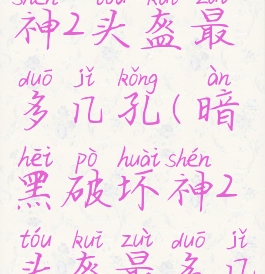 shén tóu kuī zuì
神2头盔最
duō jǐ kǒng àn
多几孔(暗
hēi pò huài shén
黑破坏神2
tóu kuī zuì duō jǐ
头盔最多几